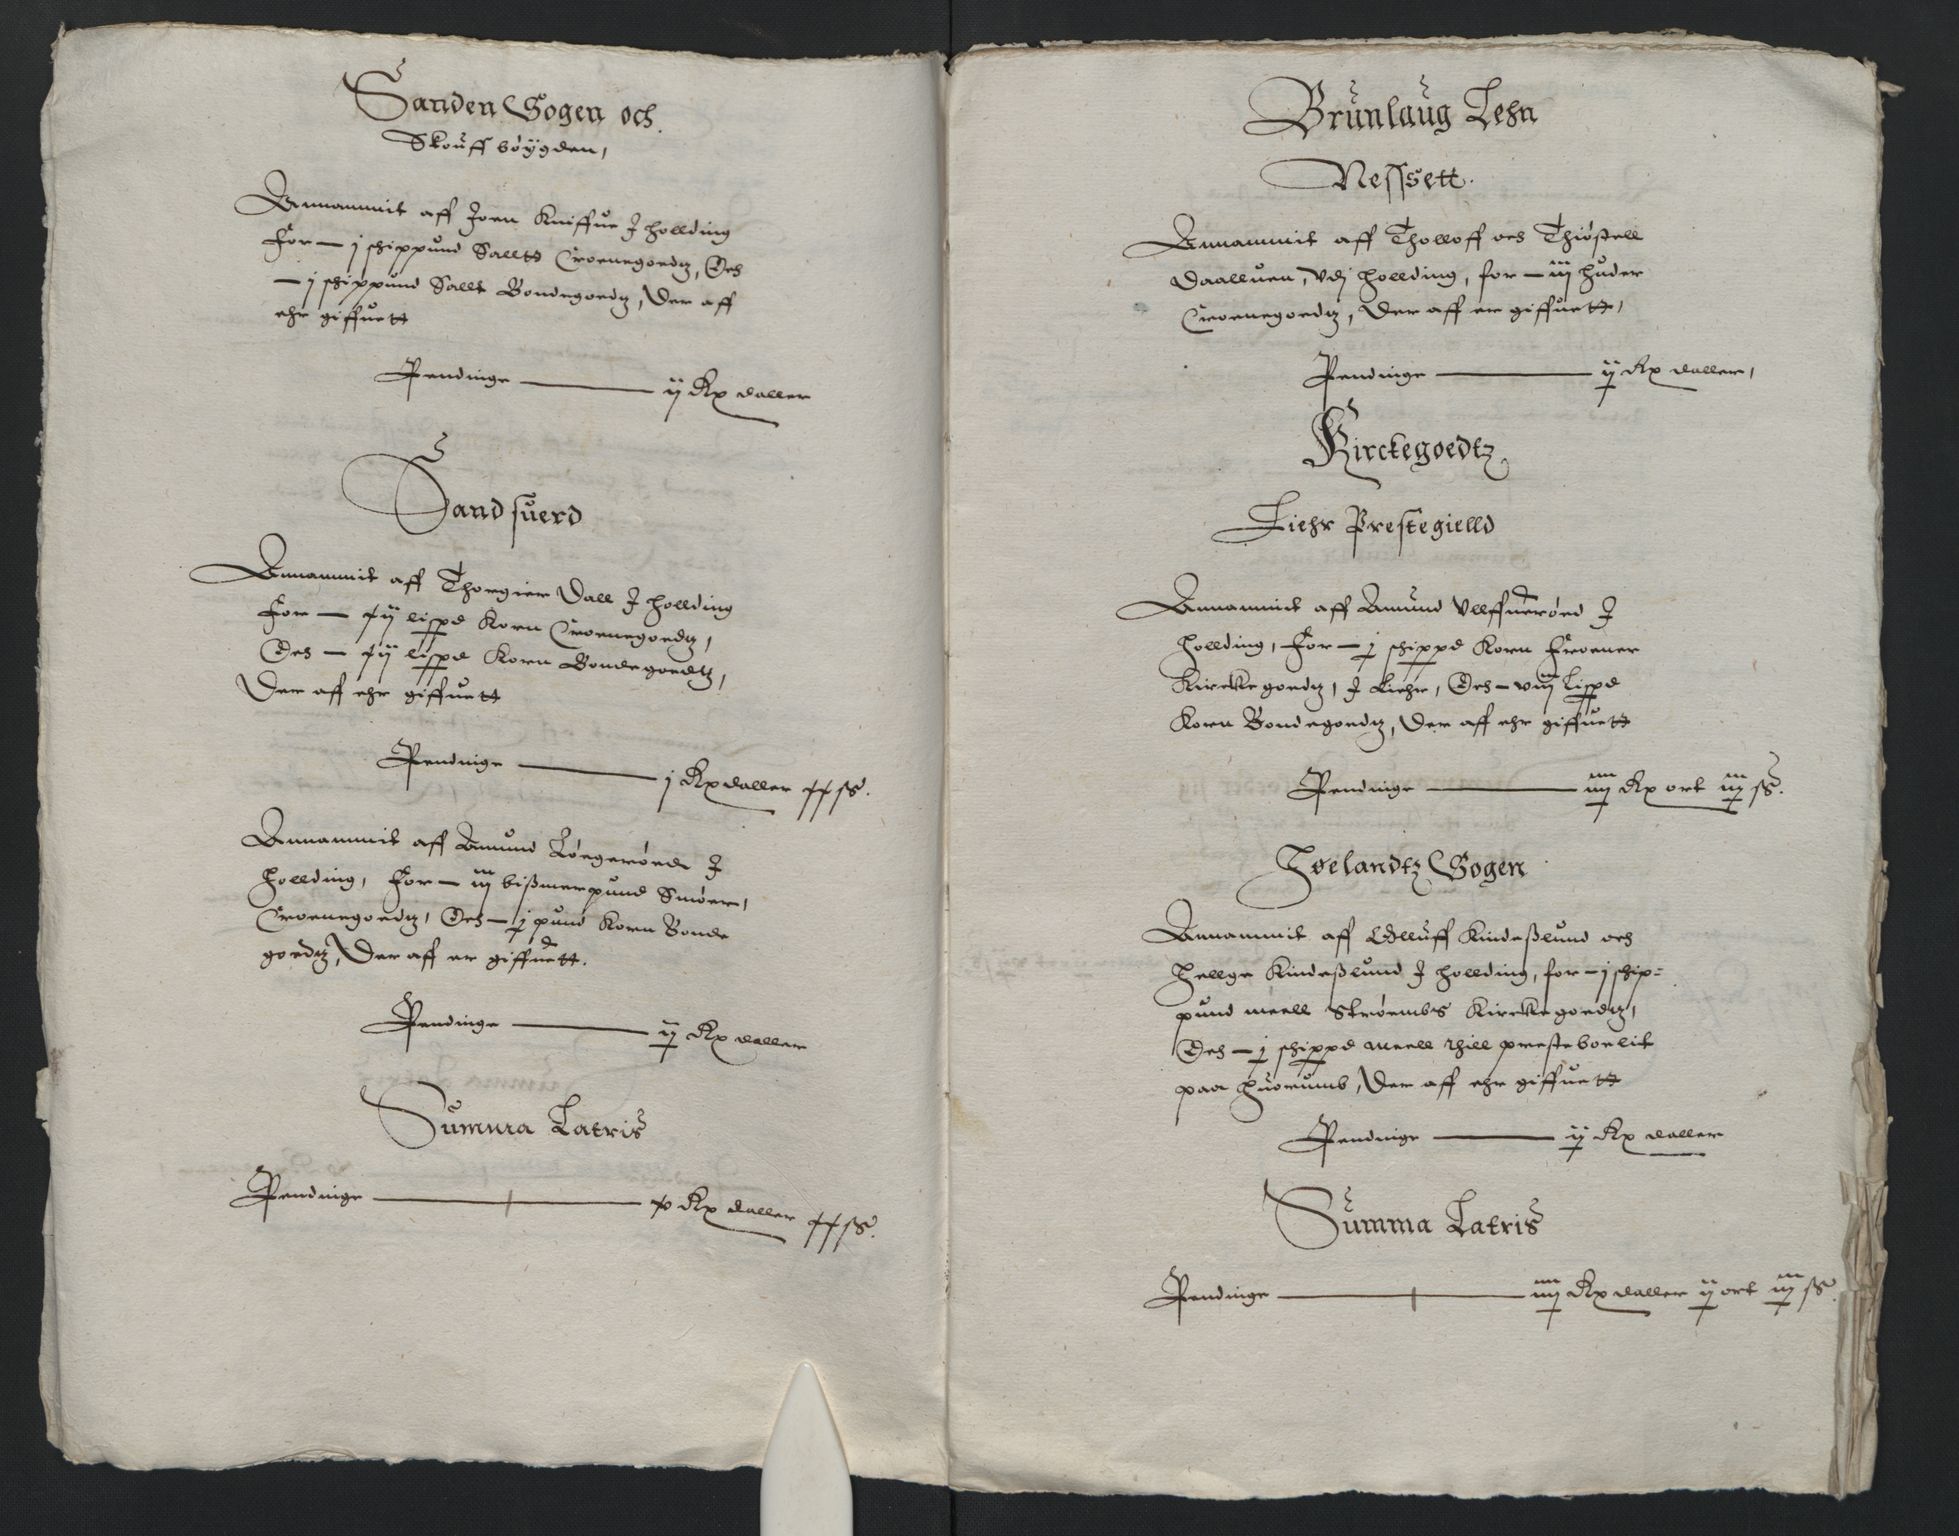 Sanden Sogen och
Skouff böygden,
Annammit aff Joen Kniffue J Hollding
For — j schippund Salltt Croenegoedtz, Och
— j schippund Sallt Bondegoedtz, Der aff
ehr giffuett
Pendinge — ij Rx daller
Sandsuerd
Annammit aff Thorgier Dall J Hollding
For — xij lispd Korn Croenegoedtz,
Och — xij lispd Korn Bondegoedtz,
Der aff ehr giffuett
Pendinge — j Rx daller xx sß.
Annammit aff Amund J
Hollding, For — iij bißmerpund Smöer,
Croenegoedtz, Och — j pund Korn Bonde
goedtz, Der aff er giffuett.
Pendinge — ij Rx daller
Summa Latris
Pendinge — x Rx daller xx sß.
Brunlaug Lehn
Nessett.
Annammit aff Tholloff och Thiöstell
Daalluen, vdj Hollding, for — iij huder
Croenegoedtz, Der aff er giffuett,
Pendinge — ij Rx daller,
Kirckegoedtz
Liehr Prestegielld
Annammit aff Amund Vllffueröed J
Hollding, For — j schippd Korn Froener
Kirckegoedtz, J Liehr, Och — viij lispd
Korn Bondegoedtz, Der aff ehr giffuett
Pendinge — iiij Rx ort iij sß.
Hoelandtz Sogen
Annammit aff Olluff Kindeßlund och
Hellge Kindeßlund J Hollding, for — j schip=
pund meell Ströembs Kirckegoedtz,
Och — j schippd meell thill presteboelit
paa Huorumb, Der aff ehr giffuett
Pendinge — ij Rx daller
Summa Latris
Pendinge — iiij Rx daller ij ort iij sß.